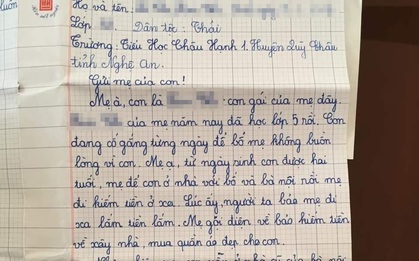 luôn
Họ và tên:
Lớp
Dân tộc: Thái
Trường: Tiểu Học Châu Hạnh 1. Huyện Quỳ Châu
tỉnh Nghệ An.
Gửi mẹ của con!
Mẹ à, con là con gái của mẹ đây.
của mẹ năm nay đã học lớp 5 rồi. Con
đang cố gắng từng ngày để bố mẹ không buồn
lòng vì con. Mẹ ạ, từ ngày sinh con được hai
tuổi, mẹ để con ở nhà với bố và bà nội rồi mẹ
đi kiếm tiền ở xa. Lúc ấy, người ta bảo mẹ đi
xa lắm tiền lắm. Mẹ gọi điện về bảo kiếm tiền
về xây nhà, mua quần áo đẹp cho con.